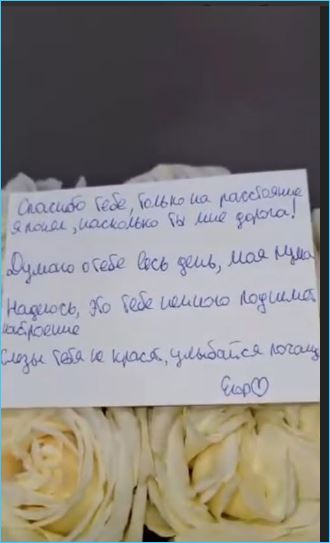 Спасибо тебе, только на расстояние
я понял, насколько ты мне дорога!
Думаю о тебе весь день, моя
Надеюсь, это тебе немного поднимет
настроение
Слезы тебя не красят, улыбайся почаще
Егор♡